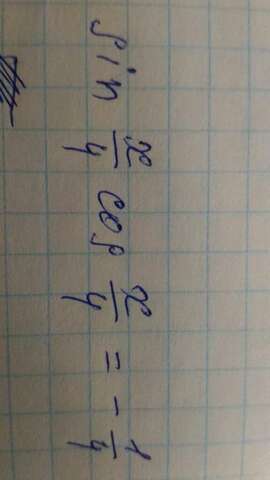 sin x/4 cos x/4 = - 1/4